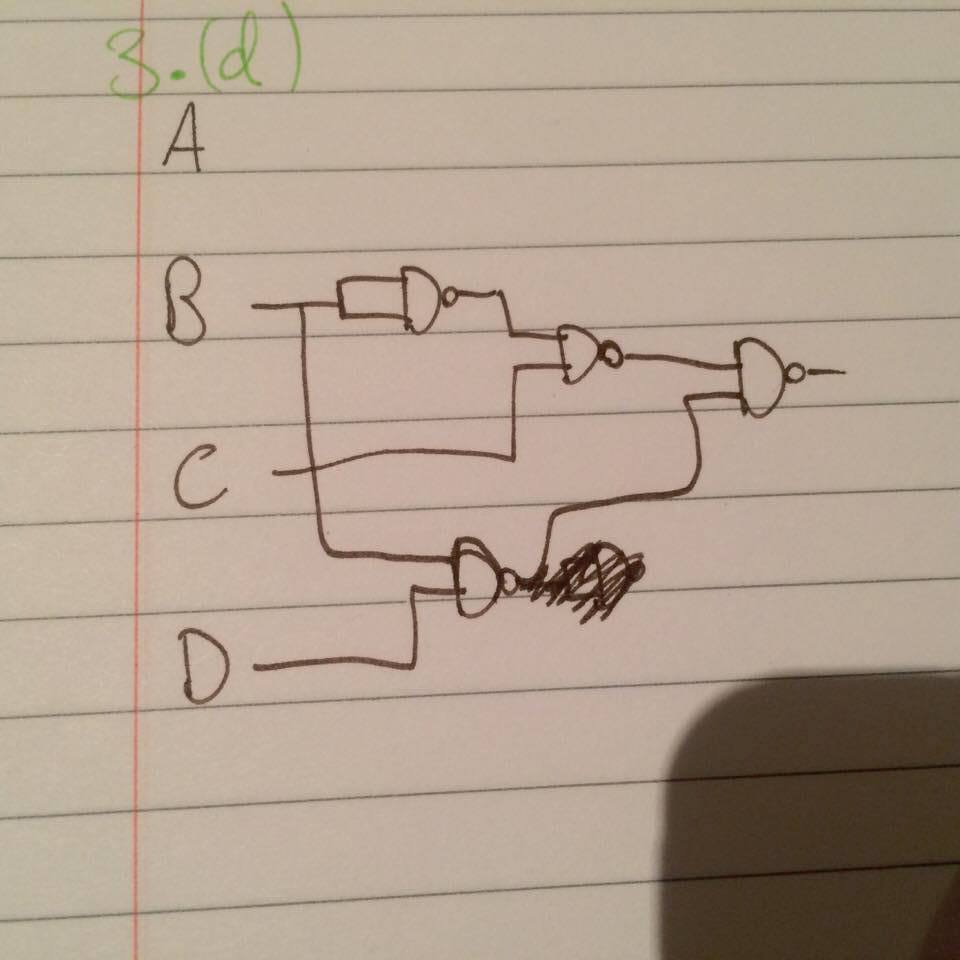 3.(d)
A
B
C
D